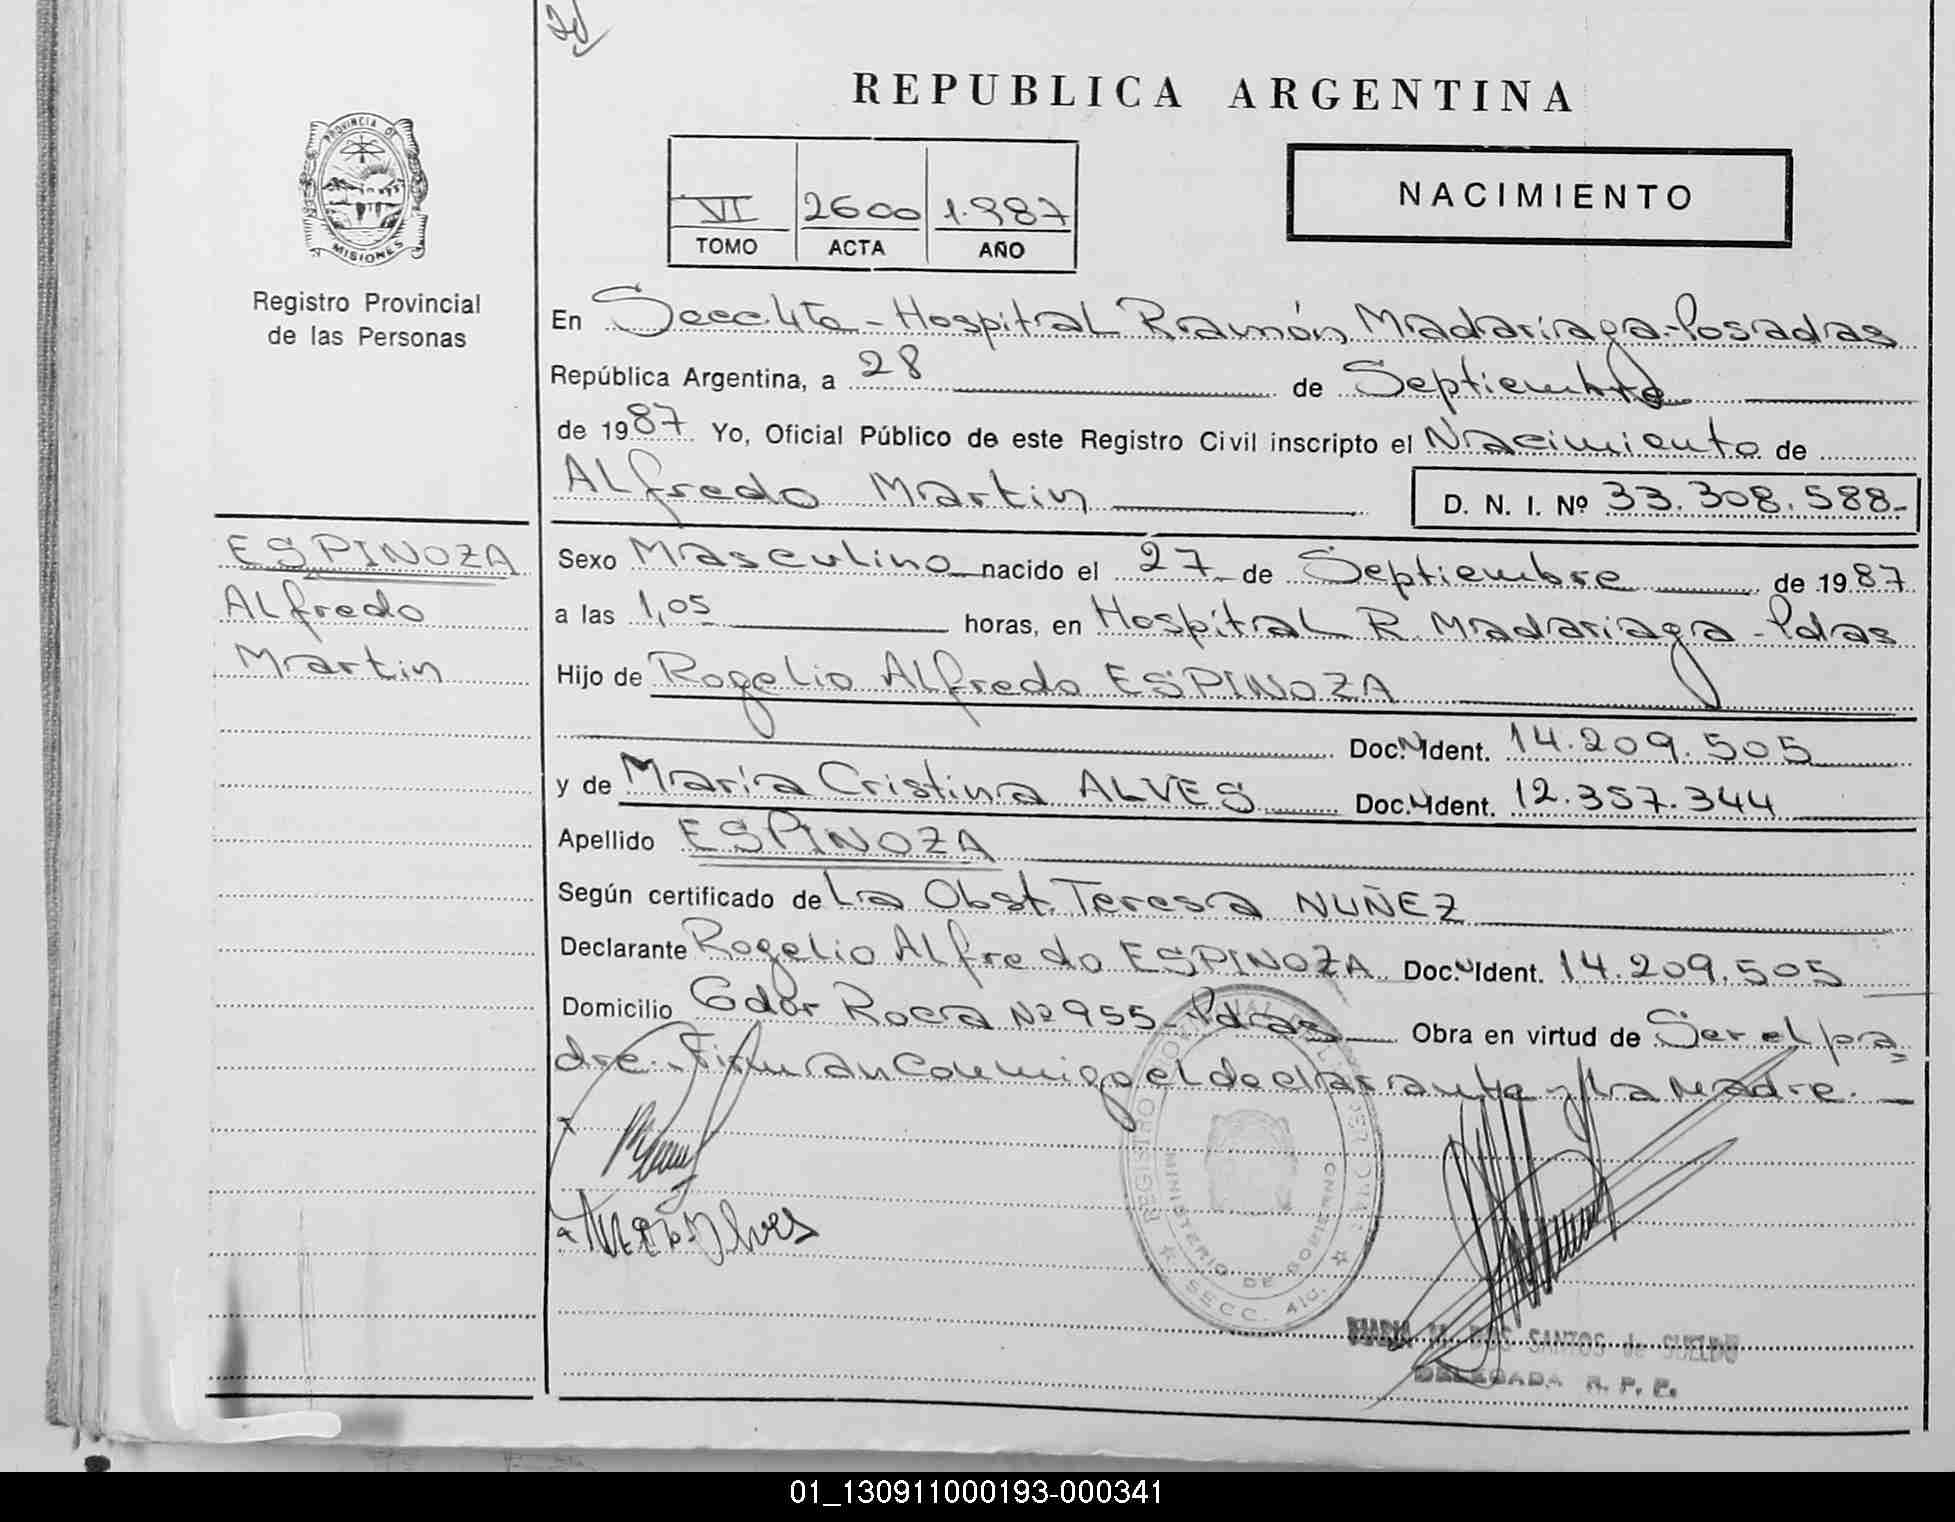 REPUBLICA ARGENTINA
PROVINCIA DE
MISIONES
Registro Provincial
de las Personas
VI 2600 1.987
TOMO ACTA AÑO
NACIMIENTO
En Secc. 4ta - Hospital Ramón Madariaga - Posadas
República Argentina, a 28 de Septiembre
de 1987 Yo, Oficial Público de este Registro Civil inscripto el Nacimiento de
Alfredo Martin D. N. I. Nº 33.308.588-
ESPINOZA
Alfredo
Martin
Sexo Masculino nacido el 27 de Septiembre de 1987
a las 1,05 horas, en Hospital R. Madariaga - Pdas
Hijo de Rogelio Alfredo ESPINOZA
Doc. Ident. 14.209.505
y de María Cristina ALVES Doc. Ident. 12.357.344
Apellido ESPINOZA
Según certificado de La Obst. Teresa NUÑEZ
Declarante Rogelio Alfredo ESPINOZA Doc. Ident. 14.209.505
Domicilio Gdor Roca Nº 955 - Pdas Obra en virtud de Ser el pa=
dre. Firman conmigo el declarante y la madre.
REGISTRO PROVINCIAL DE LAS PERSONAS
MINISTERIO DE GOBIERNO
SECC. 4ta.
Alves
DOS SANTOS de SUELDO
DELEGADA R. P. P.
01_130911000193-000341